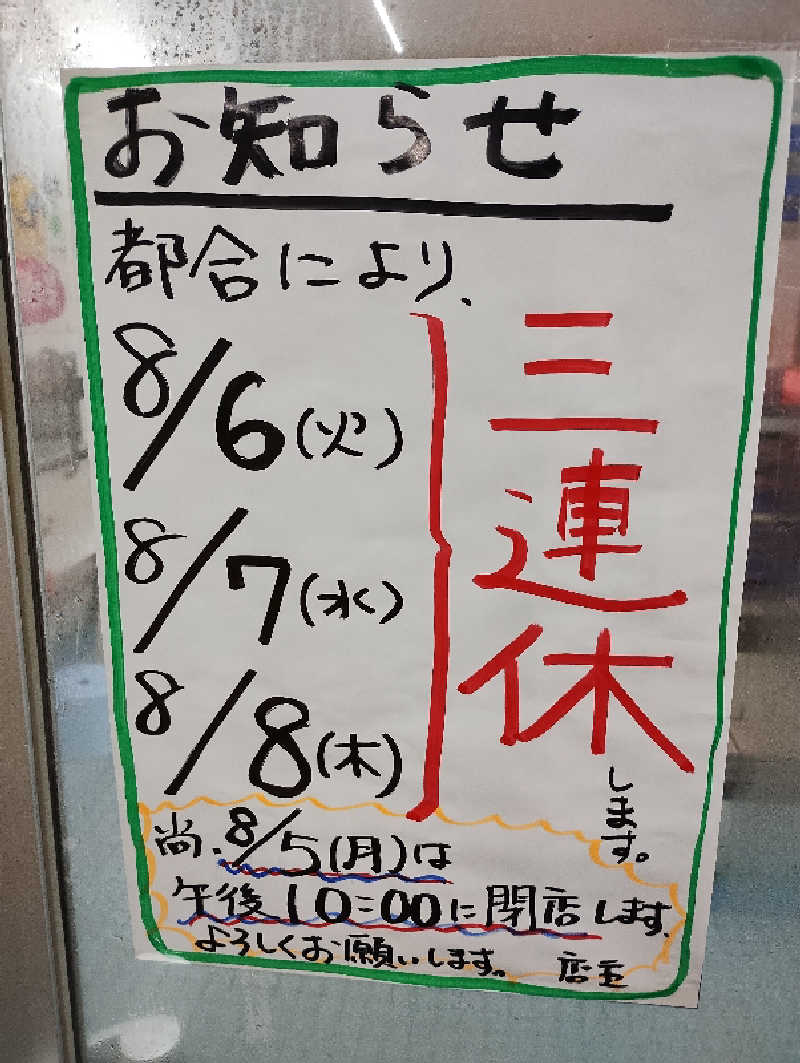 お知らせ
都合により、
8/6(火)
8/7(水)
8/8(木)
三連休します。
尚、8/5(月)は
午後10:00に閉店します、
よろしくお願いします。 店主